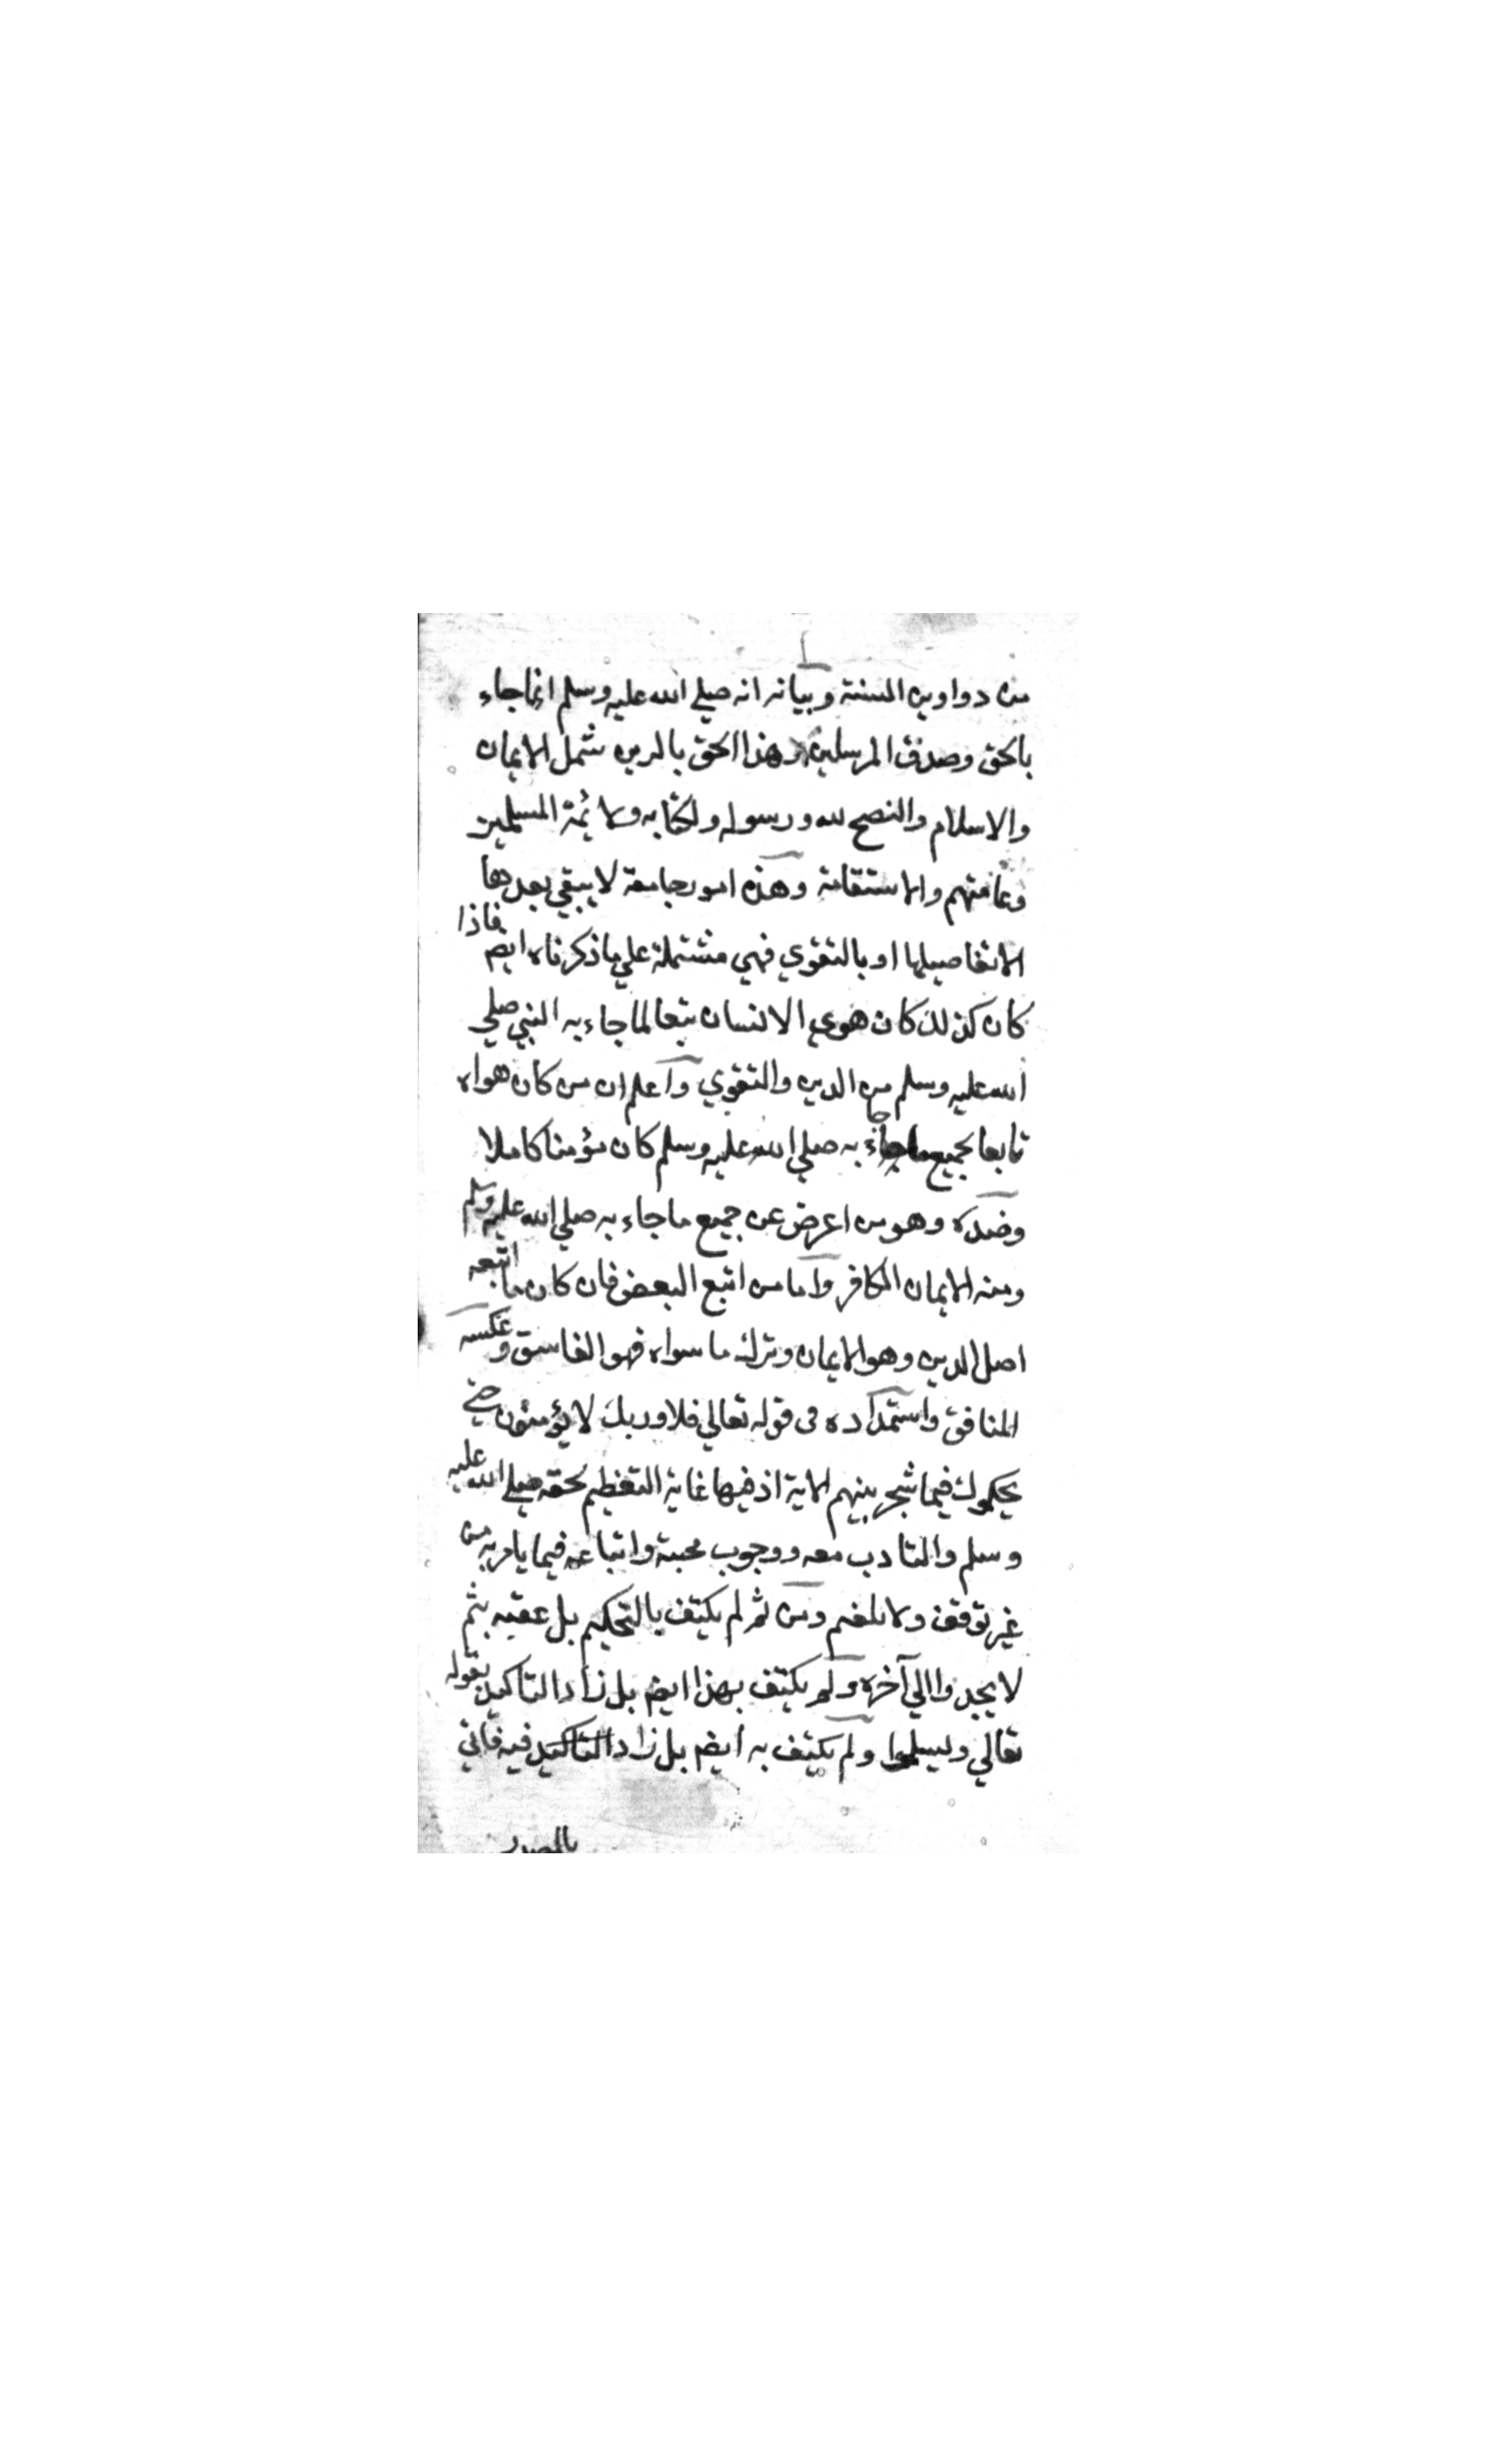 من دواوين السنة وبيانه انه صلي الله عليه وسلم انما جاء
بالحق وصدق المرسلين وهذا الحق بالدين شمل الايمان
والاسلام والنصح لله ورسوله ولكتابه ولائمة المسلمين
وعامتهم والاستقامة وهذه امور جامعة لا يبقي بعدها
الاتفاصيلها او بالتقوي فهي مشتملة علي ما ذكرناه ايضم فاذا
كان كذلك كان هوي الانسان تبعا لما جاء به النبي صلي
الله عليه وسلم من الدين والتقوي واعلم ان من كان هواه
تابعا لجميع ما جاء به صلي الله عليه وسلم كان مؤمنا كاملا
وضده وهو من اعرض عن جميع ما جاء به صلي الله عليه وسلم
ومنه الايمان الكافر واما من اتبع البعض فان كان ما اتبعه
اصل الدين وهو الايمان وترك ما سواه فهو الفاسق وعكسه
المنافق واستمداده من قوله تعالي فلا وربك لا يؤمنون حتي
يحكموك فيما شجر بينهم الاية اذ فيها غاية التعظيم لحقه صلي الله عليه
وسلم والتادب معه ووجوب محبته واتباعه فيما يامر به من
غير توقف ولا تلعثم ومن ثم لم يكتف بالتحكيم بل عقبه بثم
لا يجدوا الي آخره ولم يكتف بهذا ايضم بل زاد التاكيد بقوله
تعالي وليسلموا ولم يكتف به ايضم بل زاد التاكيد فيه فاتي
بالمصدر